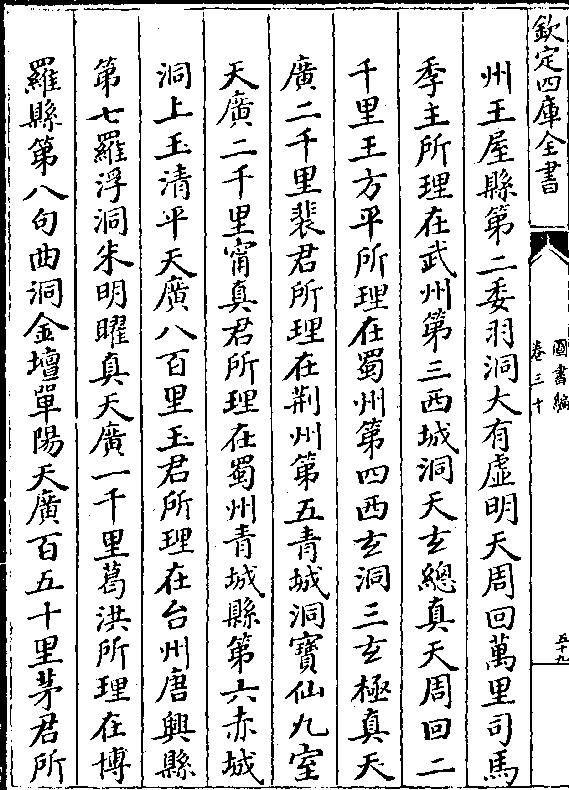 欽定四庫全書
圖書編
卷三十
五十九
州王屋縣第二委羽洞大有虛明天周回萬里司馬
季主所理在武州第三西城洞天玄總真天周回二
千里王方平所理在蜀州第四西玄洞三玄極真天
廣二千里裴君所理在荆州第五青城洞寶仙九室
天廣二千里甯真君所理在蜀州青城縣第六赤城
洞上玉清平天廣八百里玉君所理在台州唐興縣
第七羅浮洞朱明曜真天廣一千里葛洪所理在博
羅縣第八句曲洞金壇單陽天廣百五十里茅君所